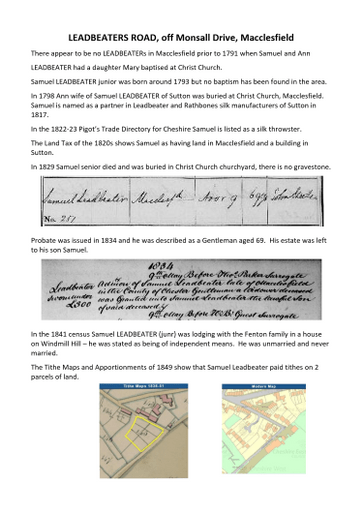 LEADBEATERS ROAD, off Monsall Drive, Macclesfield
There appear to be no LEADBEATERs in Macclesfield prior to 1791 when Samuel and Ann
LEADBEATER had a daughter Mary baptised at Christ Church.
Samuel LEADBEATER junior was born around 1793 but no baptism has been found in the area.
In 1798 Ann wife of Samuel LEADBEATER of Sutton was buried at Christ Church, Macclesfield.
Samuel is named as a partner in Leadbeater and Rathbones silk manufacturers of Sutton in
1817.
In the 1822-23 Pigot's Trade Directory for Cheshire Samuel is listed as a silk throwster.
The Land Tax of the 1820s shows Samuel as having land in Macclesfield and a building in
Sutton.
In 1829 Samuel senior died and was buried in Christ Church churchyard, there is no gravestone.
Samuel Leadbeater Macclesfd Novr 9 69 yrs
No. 257
Probate was issued in 1834 and he was described as a Gentleman aged 69. His estate was left
to his son Samuel.
1834
9th May Before Thos. Parker Surrogate
Leadbeater Admon of Samuel Leadbeater late of Macclesfield
in the County of Chester Gentleman a Widower deceased
£300 was Granted unto Samuel Leadbeater the lawful Son
of said deceased
9th May Before Surrogate
In the 1841 census Samuel LEADBEATER (junr) was lodging with the Fenton family in a house
on Windmill Hill – he was stated as being of independent means. He was unmarried and never
married.
The Tithe Maps and Apportionments of 1849 show that Samuel Leadbeater paid tithes on 2
parcels of land.
Tithe Maps 1836-51
Modern Map